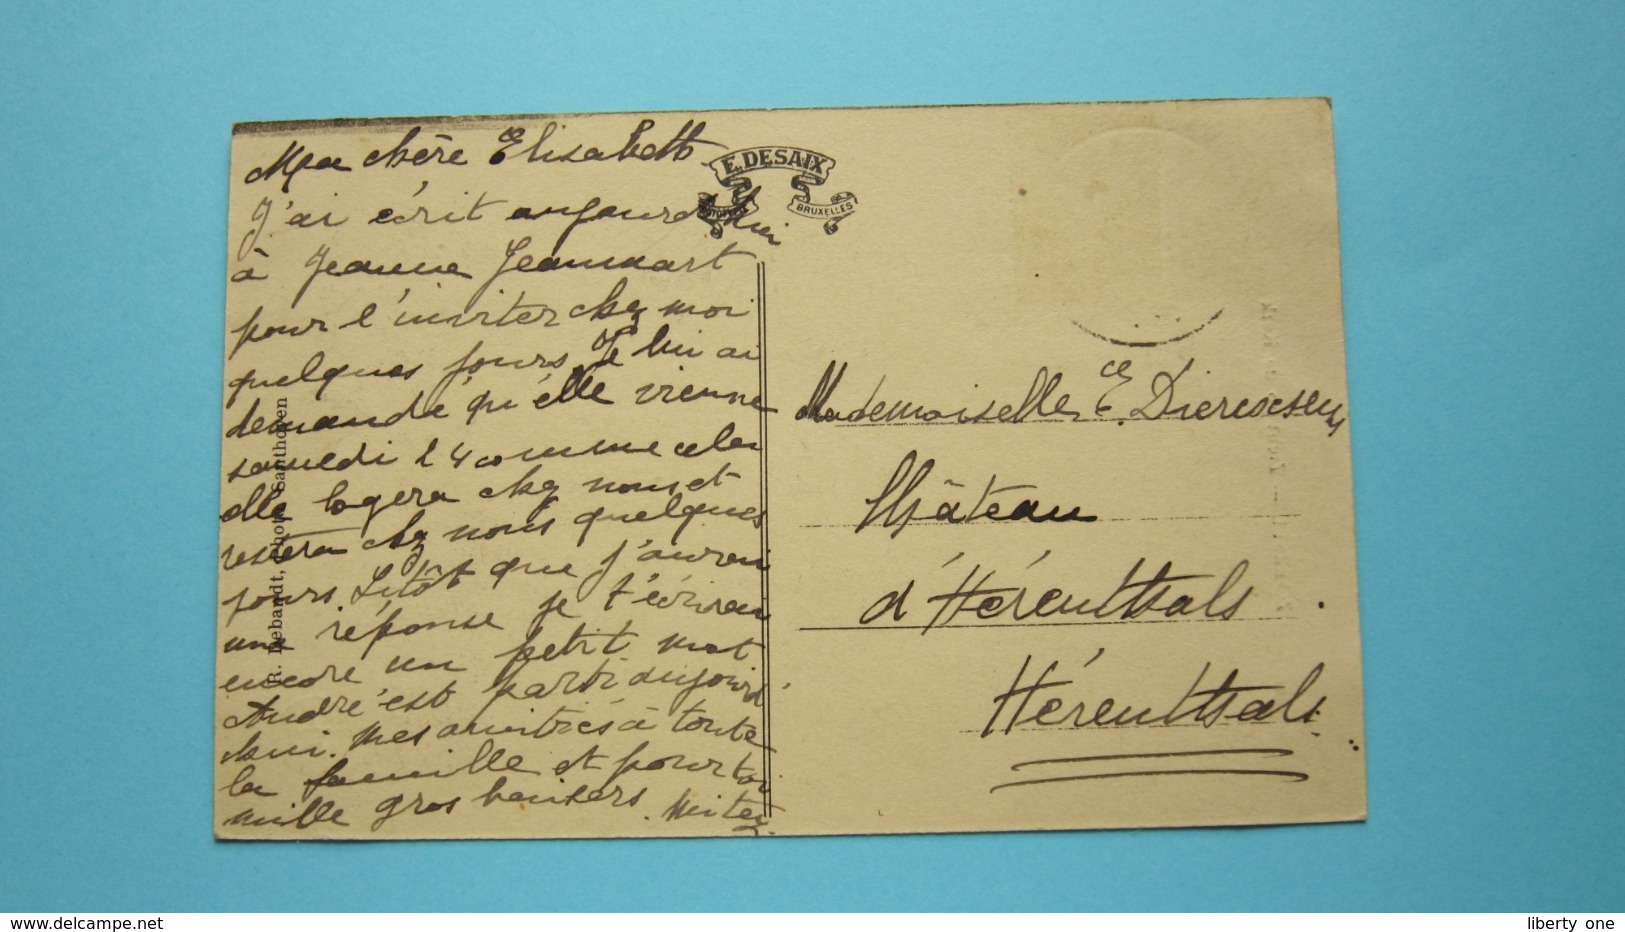 Ma chère Elisabeth
J'ai écrit aujourd'hui
à Jeanne Jeanmart
pour l'inviter chez moi
quelques jours. Je lui ai
demandé qu'elle vienne
samedi 24 comme cela
elle logera chez nous et
restera chez nous quelques
jours. Sitôt que j'aurai
une réponse je t'écrirai
encore un petit mot
André est parti aujourd'
hui. Mes amitiés à toute
la famille et pour toi
mille gros baisers.
E. DESAIX
BRUXELLES
R. Debandt, Santhoven
Mademoiselle E. Dierexsens
Château
d'Hérenthals.
Hérenthals
www.delcampe.net
liberty_one